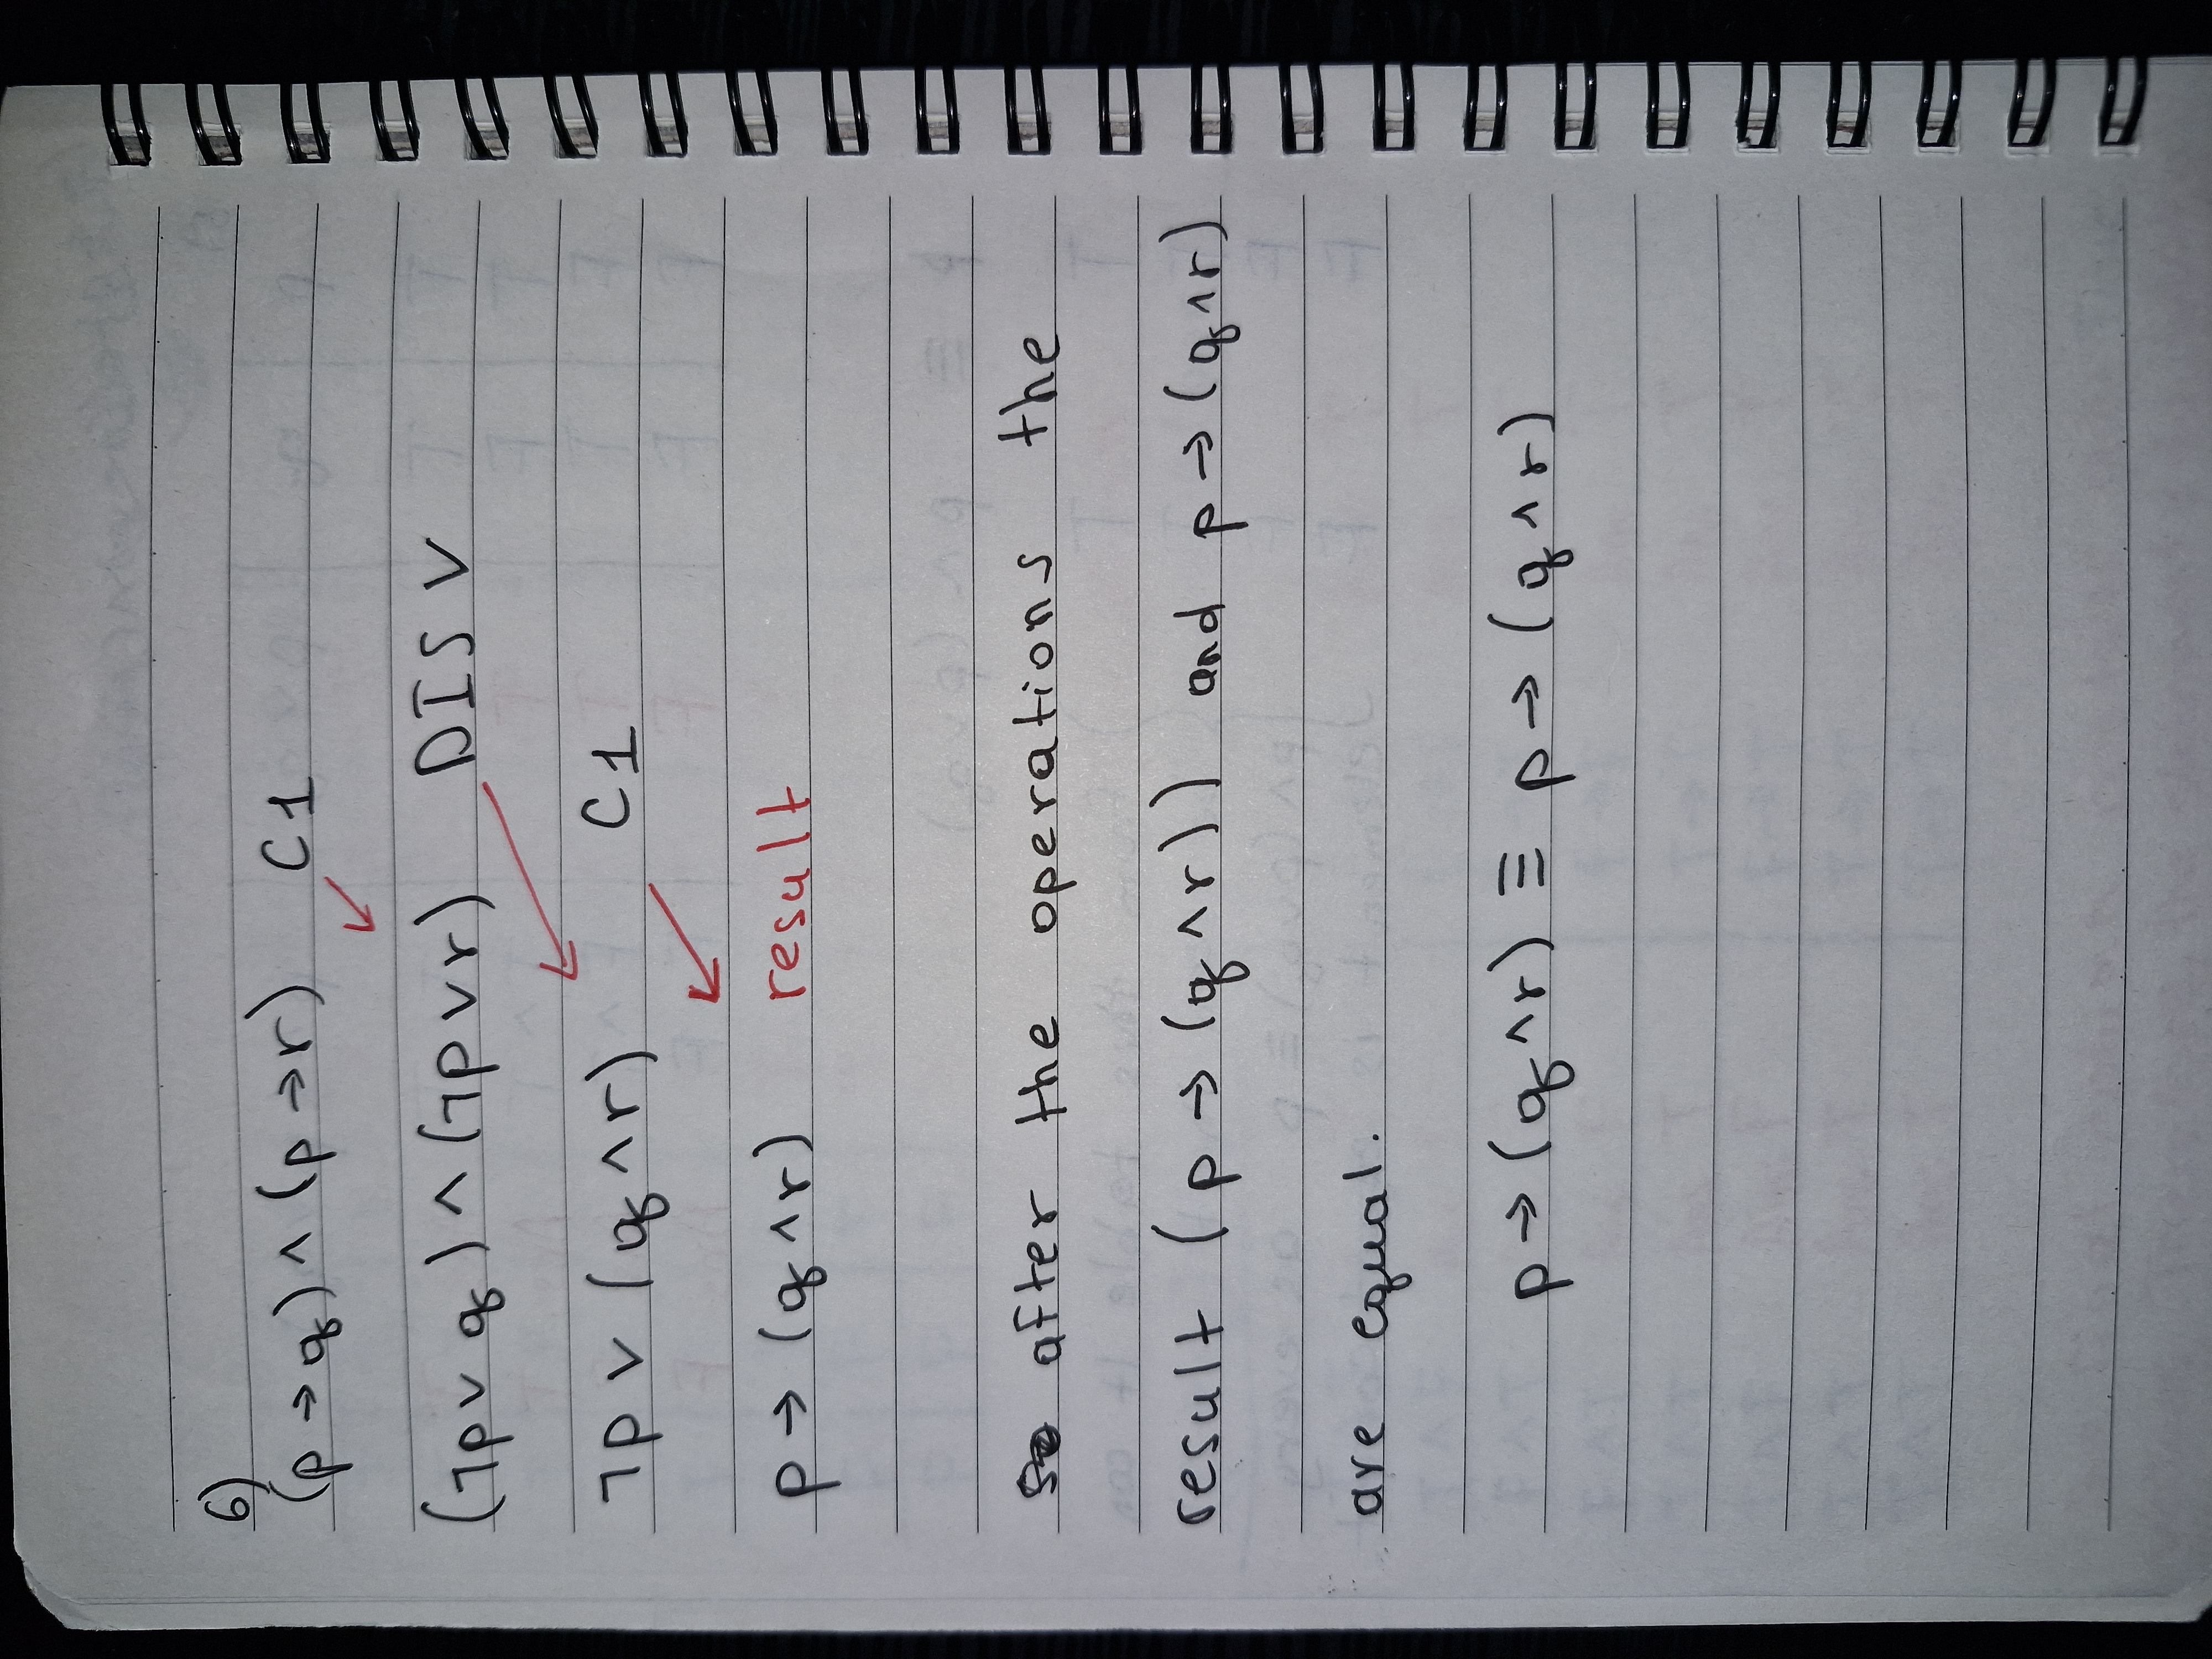 6)
(p → q) ∧ (p → r) C1
(¬p ∨ q) ∧ (¬p ∨ r) DIS ∨
¬p ∨ (q ∧ r) C1
p → (q ∧ r) result
so after the operations the
result (p → (q ∧ r)) and p → (q ∧ r)
are equal.
p → (q ∧ r) ≡ p → (q ∧ r)